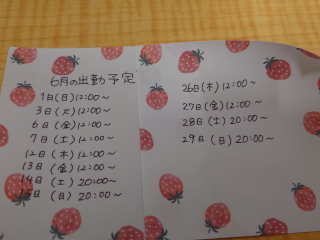 6月の出勤予定
1日(日)12:00〜
3日(火)12:00〜
6日(金)12:00〜
7日(土)12:00〜
12日(木)12:00〜
13日(金)12:00〜
14日(土)20:00〜
15日(日)20:00〜
26日(木)12:00〜
27日(金)12:00〜
28日(土)20:00〜
29日(日)20:00〜